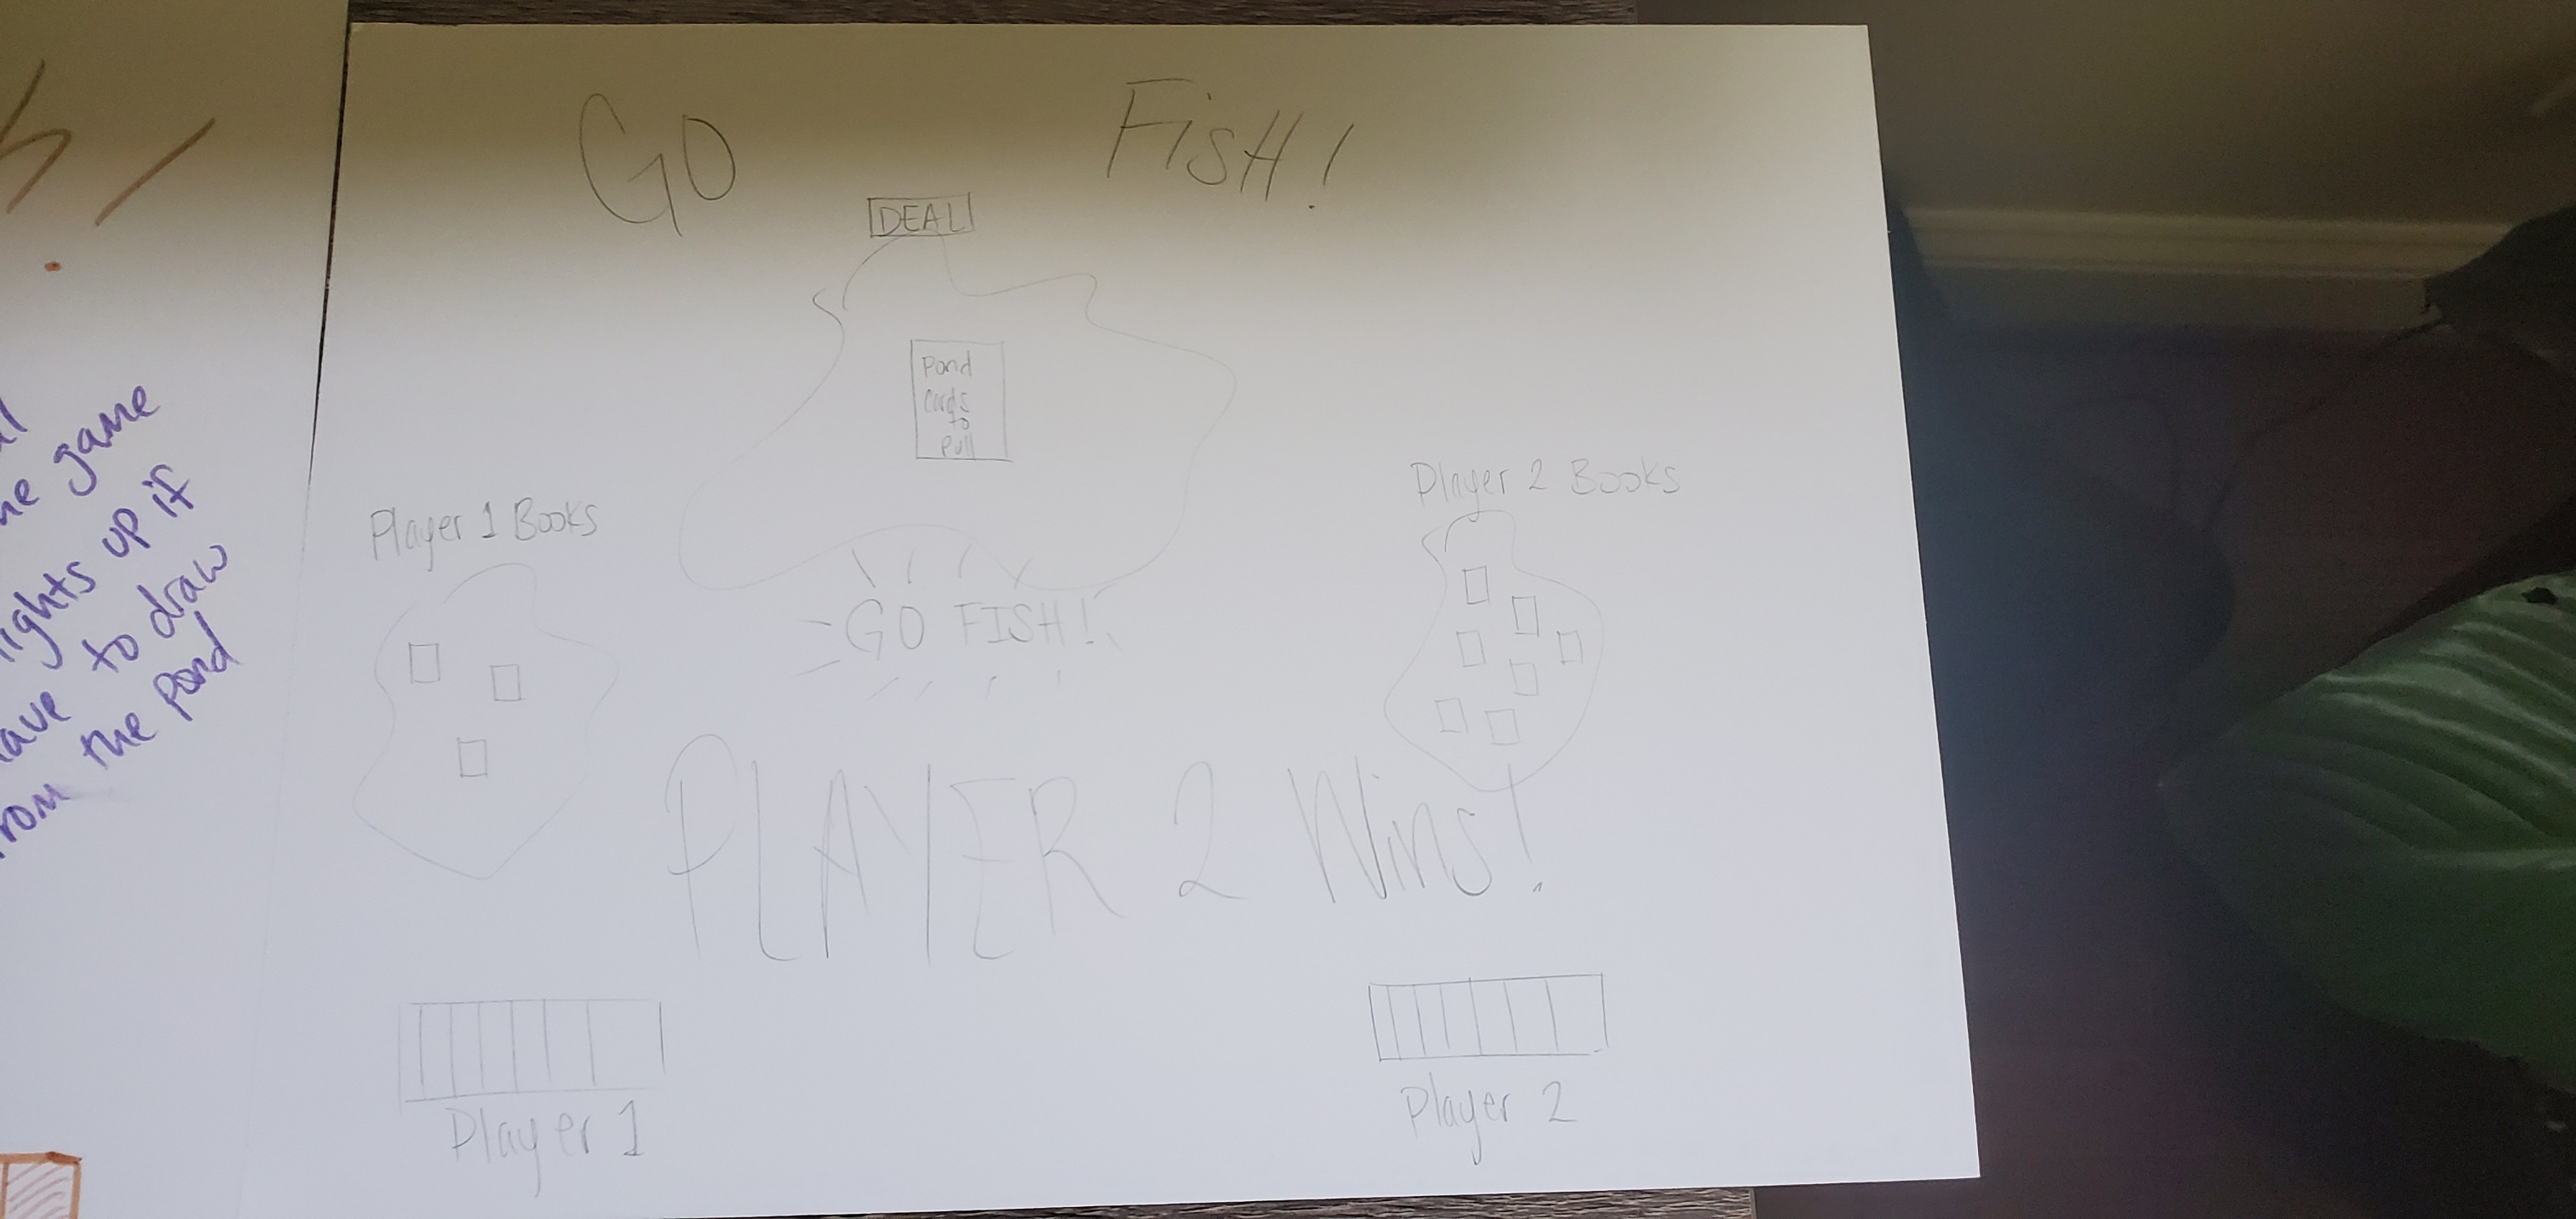 al
he game
lights up if
have to draw
from the Pond
GO FISH!
DEAL
Pond
Cards
to
Pull
Player 1 Books
Player 2 Books
GO FISH!
PLAYER 2 Wins!
Player 1
Player 2